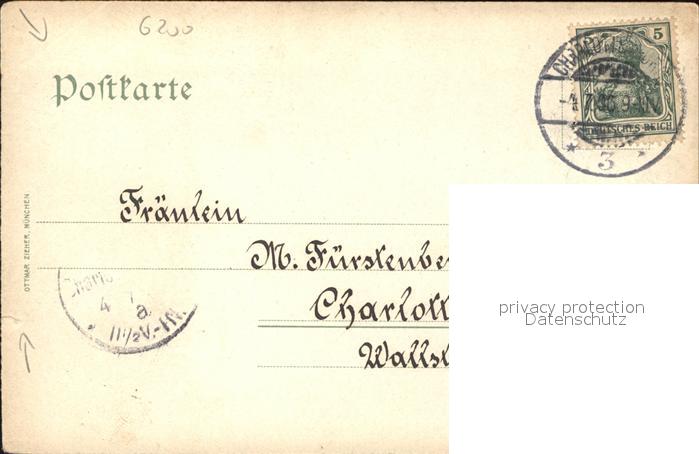 6200
5
DEUTSCHES REICH
3
Postkarte
OTTMAR ZIEHER, MÜNCHEN
Fräulein
M. Fürstenbe
Charlott
Wallst
4 7
a.
11½V.-1N.
privacy protection
Datenschutz